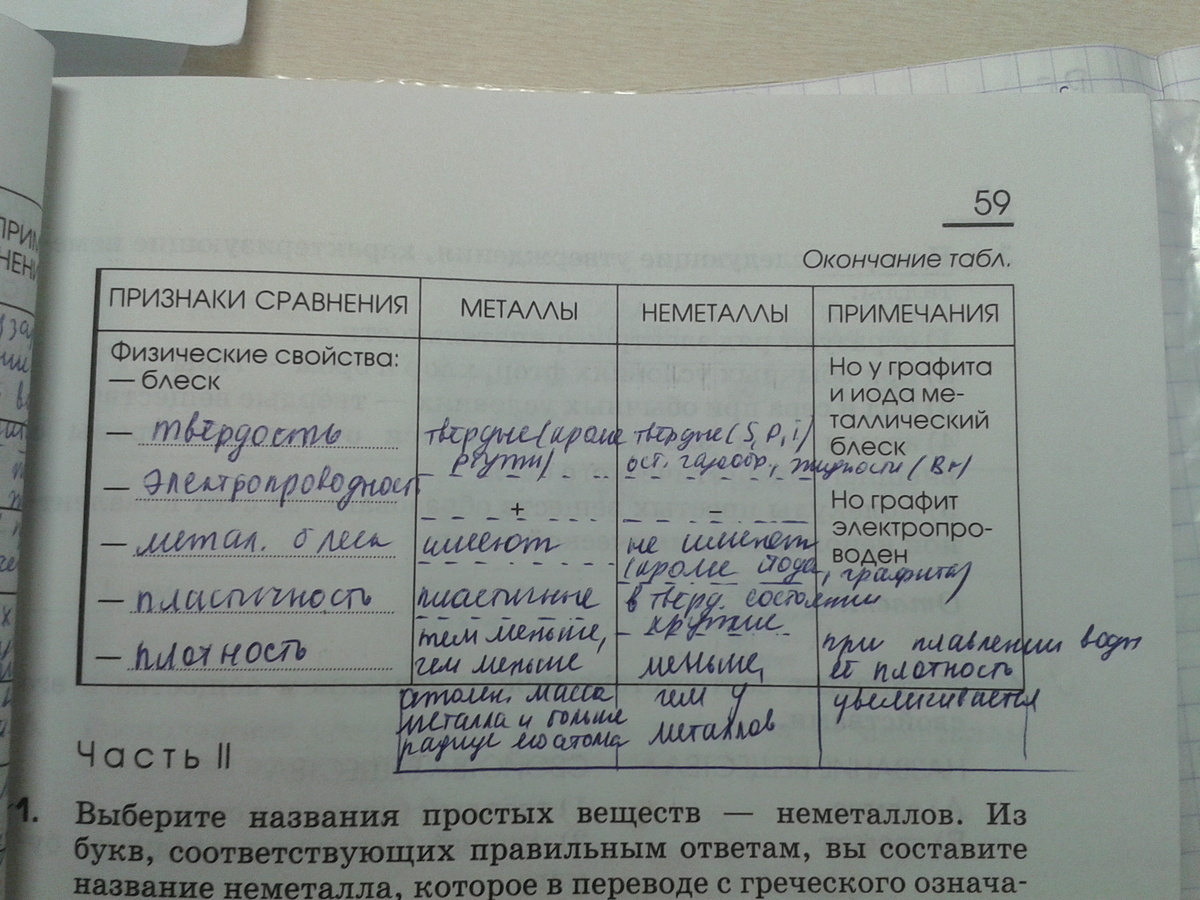 59
Окончание табл.
ПРИЗНАКИ СРАВНЕНИЯ МЕТАЛЛЫ НЕМЕТАЛЛЫ ПРИМЕЧАНИЯ
Физические свойства:
— блеск
— твёрдость
— электропроводност
— метал. блеск
— пластичность
— плотность
твёрдые (кроме
ртути)
+
имеют
пластичные
тем меньше,
чем меньше
атомн. масса
металла и больше
радиус его атома
твёрдые (S, P, I)
ост. газообр., жидкости (Br)
–
не имеют
(кроме йода, графита)
в тверд. состоянии
– хрупкие
меньше,
чем у
металлов
Но у графита
и иода ме-
таллический
блеск
Но графит
электропро-
воден
при плавлении воды
её плотность
увеличивается
Часть II
1. Выберите названия простых веществ — неметаллов. Из
букв, соответствующих правильным ответам, вы составите
название неметалла, которое в переводе с греческого означа-